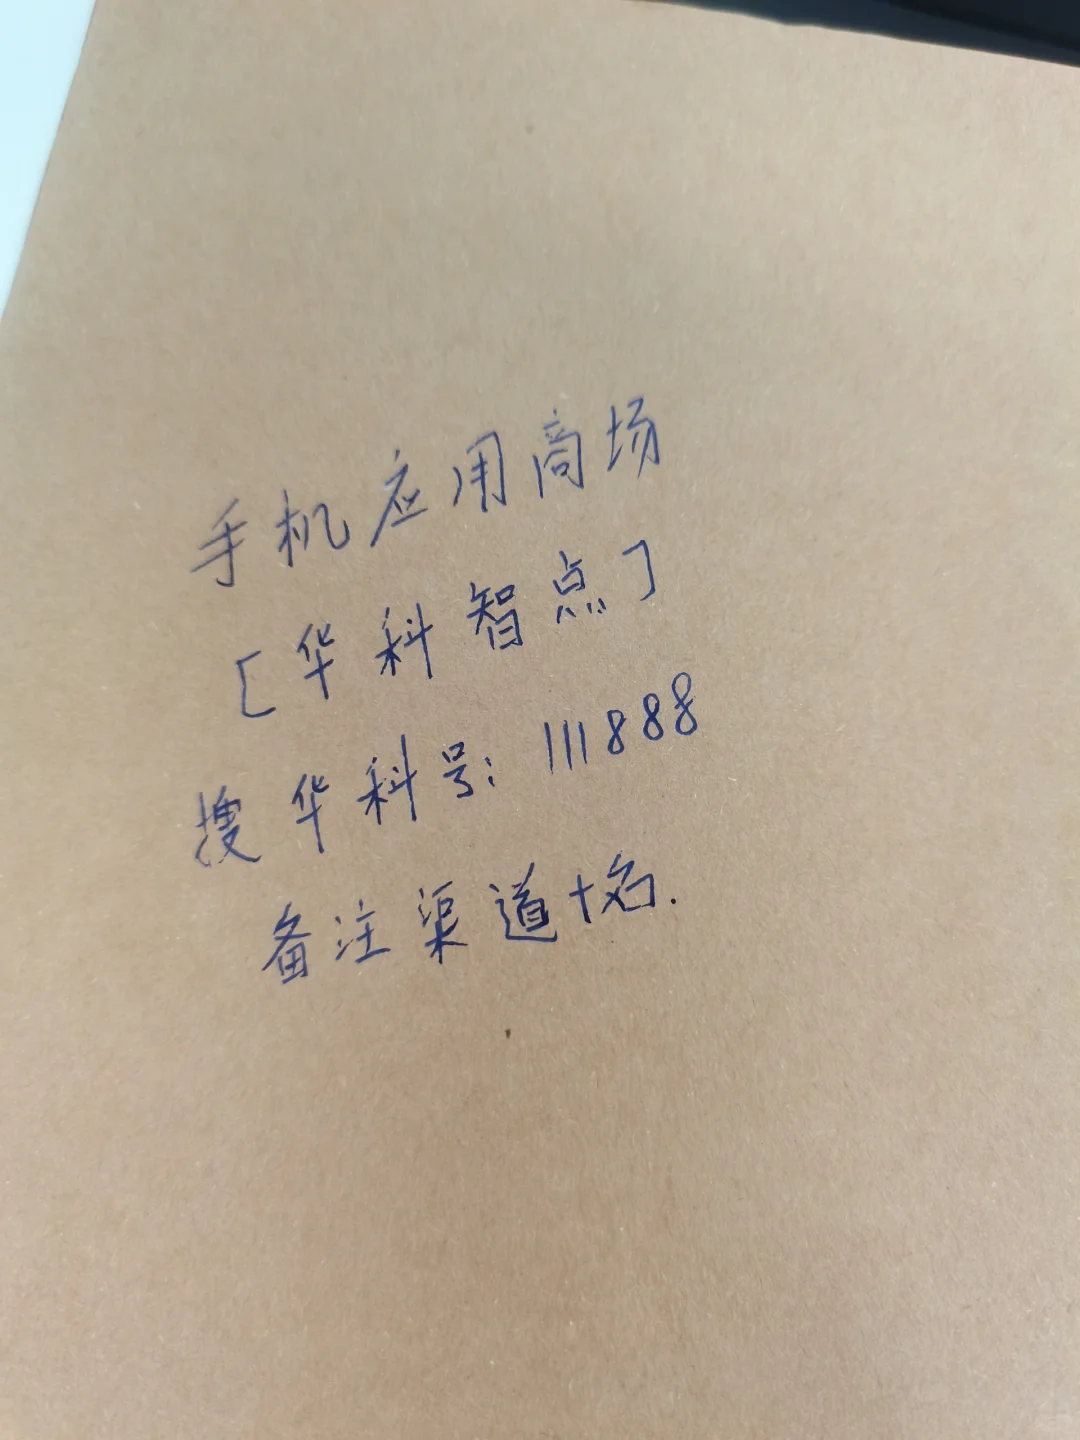 手机应用商场
[华科智点]
搜华科号:111888
备注渠道+名.